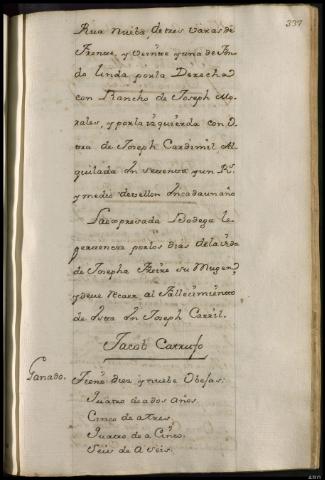 337
Rua nueba, de tres varas de
frente, y veinte y una de fon
do linda por la Derecha
con Rancho de Joseph Mo
rales, y por la izquierda con o
tra de Joseph Cardimil Al
quilada en sesenta y un Rs.
y medio de vellon en cada un año
La expresada Bodega le
pertenece por los dias de la vida
de Josepha Freire su Muger,
y deve recaer al fallecimiento
de esta en Joseph Carril.
Jacob Carrufo
Ganado.
Tiene diez y nuebe Obejas.
Quatro de a dos años.
Cinco de a tres.
Quatro de a Cinco.
Seis de a seis.